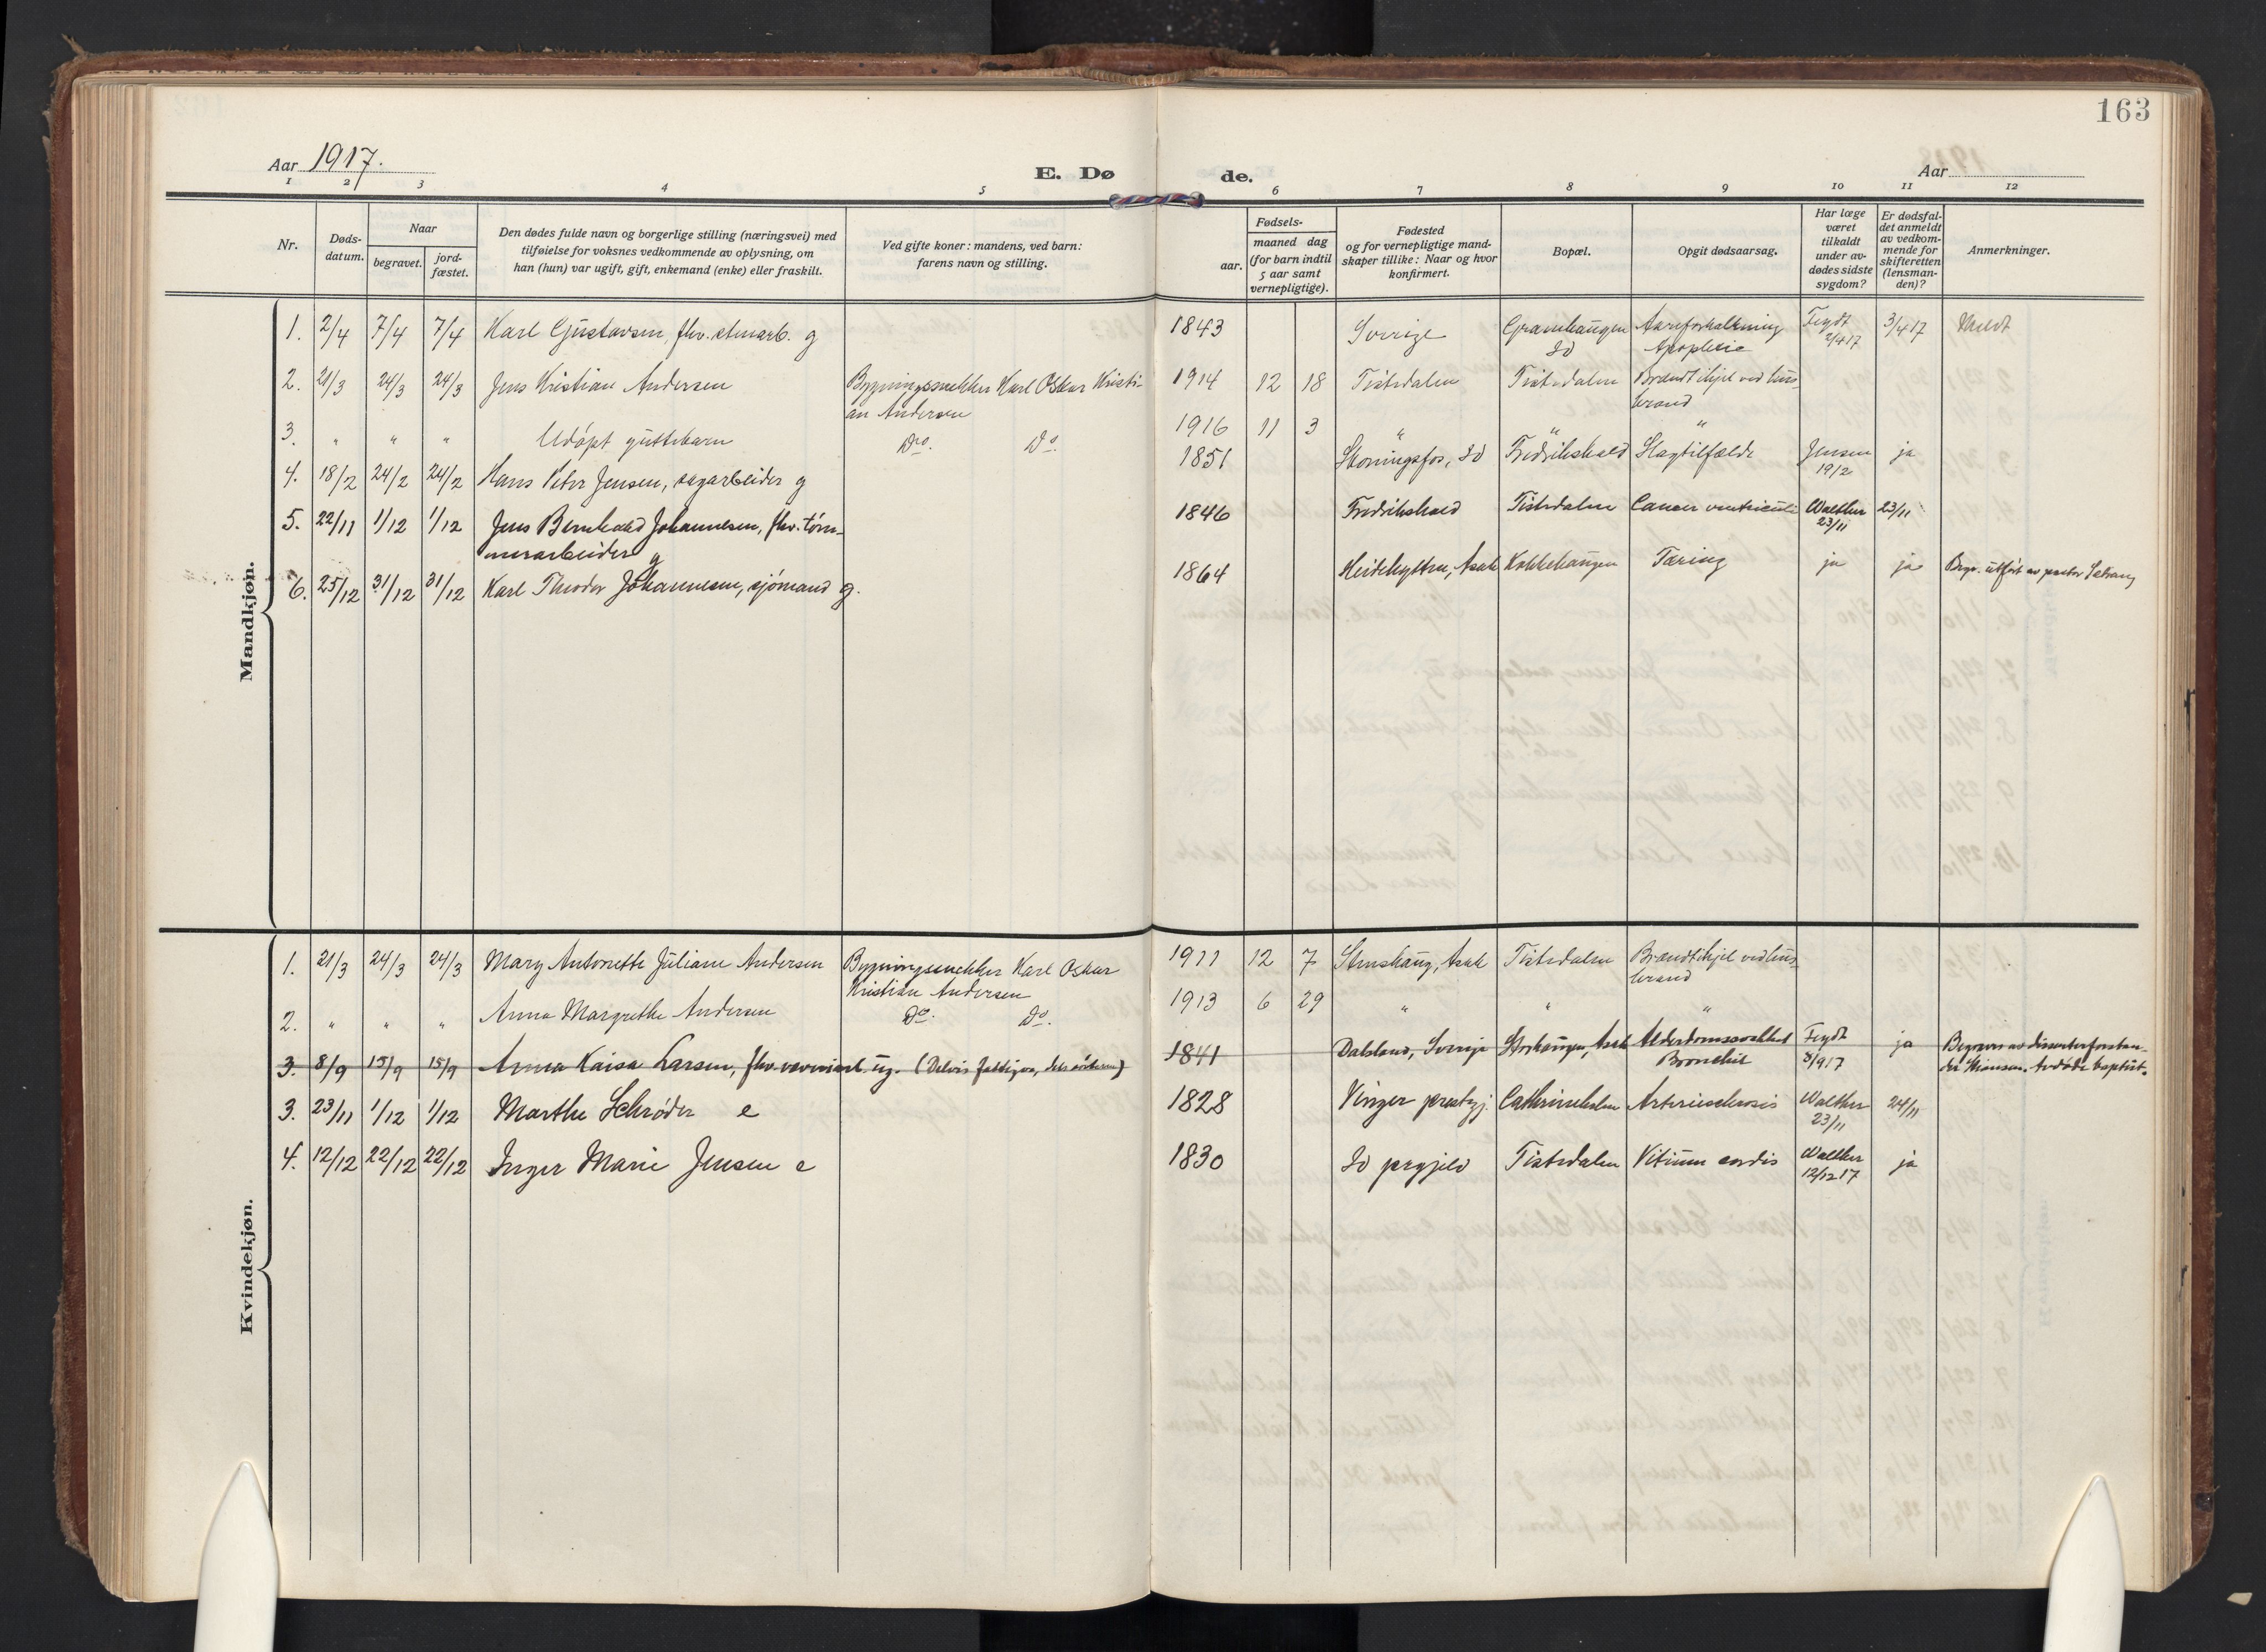 163
Aar 1917.
E. Dø
de.
Aar
1 2 3 4 5 6 7 8 9 10 11 12
Nr.
Døds-
datum.
Naar
begravet.
jord-
fæstet.
Den dødes fulde navn og borgerlige stilling (næringsvei) med
tilføielse for voksnes vedkommende av oplysning, om
han (hun) var ugift, gift, enkemand (enke) eller fraskilt.
Ved gifte koner: mandens, ved barn:
farens navn og stilling.
Fødsels-
aar.
maaned dag
(for barn indtil
5 aar samt
vernepligtige).
Fødested
og for vernepligtige mand-
skaper tillike: Naar og hvor
konfirmert.
Bopæl.
Opgit dødsaarsag.
Har læge
været
tilkaldt
under av-
dødes sidste
sygdom?
Er dødsfal-
det anmeldt
av vedkom-
mende for
skifteretten
(lensman-
den)?
Anmerkninger.
Mandkjøn.
1. 2/4 7/4 7/4 Karl Gustavsen, fhv. stenarb. g 1843 Sverige Gramhaugen Aareforkalkning Feydt 3/4 17
Id Apoplexie 2/4 17
2. 21/3 24/3 24/3 Jens Kristian Andersen Bygningssnekker Karl Oskar Kristi- 1914 12 18 Tistedalen Tistedalen Brændt ihjel ved hus-
an Andersen brand
3. " " " Udöpt guttebarn Do. Do. 1916 11 3 " " "
4. 18/2 24/2 24/2 Hans Peter Jensen, sagarbeider g 1851 Skoningsfos, Id Fredrikshald Slagtilfælde Jensen ja
19/2
5. 22/11 1/12 1/12 Jens Bernhard Johannesen, fhv. töm- 1846 Fredrikshald Tistedalen Cancer ventriculi Walther 23/11
merarbeider g 23/11
6. 25/12 31/12 31/12 Karl Theodor Johannesen, sjömand g. 1864 Heidehytten, Asak Kokkehaugen Tæring ja ja Begr. utført av pastor
Kvindekjøn.
1. 21/3 24/3 24/3 Mary Antonette Juliane Andersen Bygningssnekker Karl Oskar 1911 12 7 Stenshaug, Asak Tistedalen Brændt ihjel ved hus-
Kristian Andersen brand
2. " " " Anna Margrethe Andersen Do. Do. 1913 6 29 " " "
3. 8/9 15/9 15/9 Anna Kaisa Larsen, fhv. væveriarb. ug. (Delvis fattigv., dels 1841 Dalsland, Sverige Storhaugen, Asak Alderdomssvakhet Feydt ja Begraves av dissenterforstan-
Bronchit 8/9 17 der Hansen. Avdöde baptist.
3. 23/11 1/12 1/12 Marthe Schrøder e 1828 Vinger prestegj. Cathrineholm Arteriesclerosis Walther 24/11
23/11
4. 12/12 22/12 22/12 Inger Marie Jensen e 1830 Id prgjeld Tistedalen Vitium cordis Walther ja
12/12 17